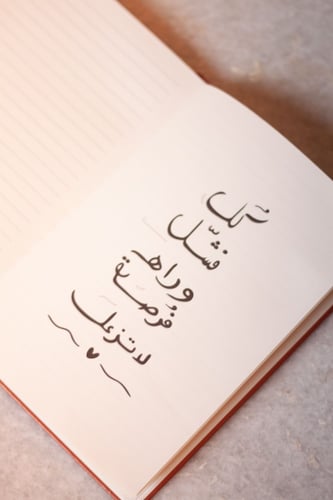 كل
فشّل
وراها
فُرصة
لا تزعل